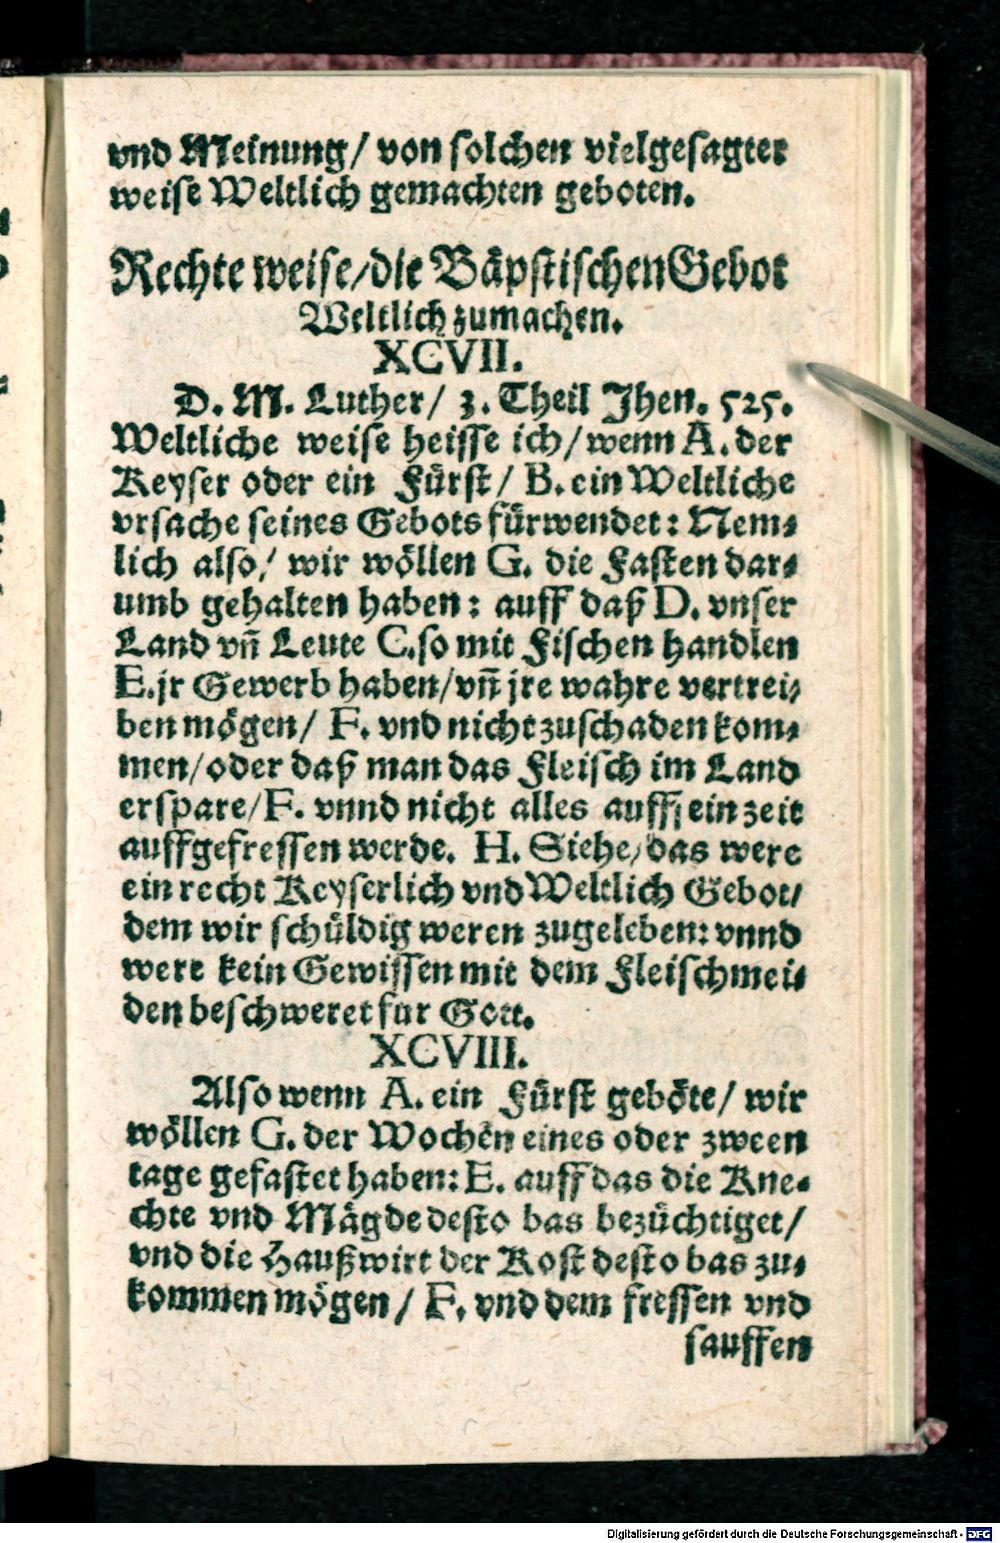 vnd Meinung/ von solchen vielgesagter
weise Weltlich gemachten geboten.
Rechte weise/die Bäpstischen Gebot
Weltlich zumachen.
XCVII.
D. M. Luther/ 3. Theil Jhen. 525.
Weltliche weise heisse ich/wenn A. der
Keyser oder ein Fürst/ B. ein Weltliche
vrsache seines Gebots fürwendet: Nem⸗
lich also/ wir wöllen G. die Fasten dar⸗
umb gehalten haben: auff daß D. vnser
Land vñ Leute C. so mit Fischen handlen
E. jr Gewerb haben/vñ jre wahre vertrei⸗
ben mögen/ F. vnd nicht zuschaden kom⸗
men/oder daß man das Fleisch im Land
erspare/F. vnnd nicht alles auff ein zeit
auffgefressen werde. H. Siehe/das were
ein recht Keyserlich vnd Weltlich Gebot/
dem wir schüldig weren zugeleben: vnnd
were kein Gewissen mit dem Fleischmei⸗
den beschweret fur Gott.
XCVIII.
Also wenn A. ein Fürst geböte/ wir
wöllen G. der Wochen eines oder zween
tage gefastet haben: E. auff das die Kne⸗
chte vnd Mägde desto bas bezüchtiget/
vnd die Haußwirt der Kost desto bas zu⸗
kommen mögen/ F. vnd dem fressen vnd
sauffen
Digitalisierung gefördert durch die Deutsche Forschungsgemeinschaft - DFG